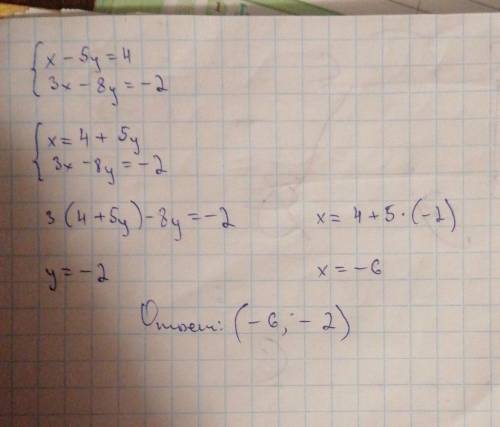 x - 5y = 4
3x - 8y = -2
x = 4 + 5y
3x - 8y = -2
3(4 + 5y) - 8y = -2
x = 4 + 5 · (-2)
y = -2
x = -6
Ответ: (-6; -2)